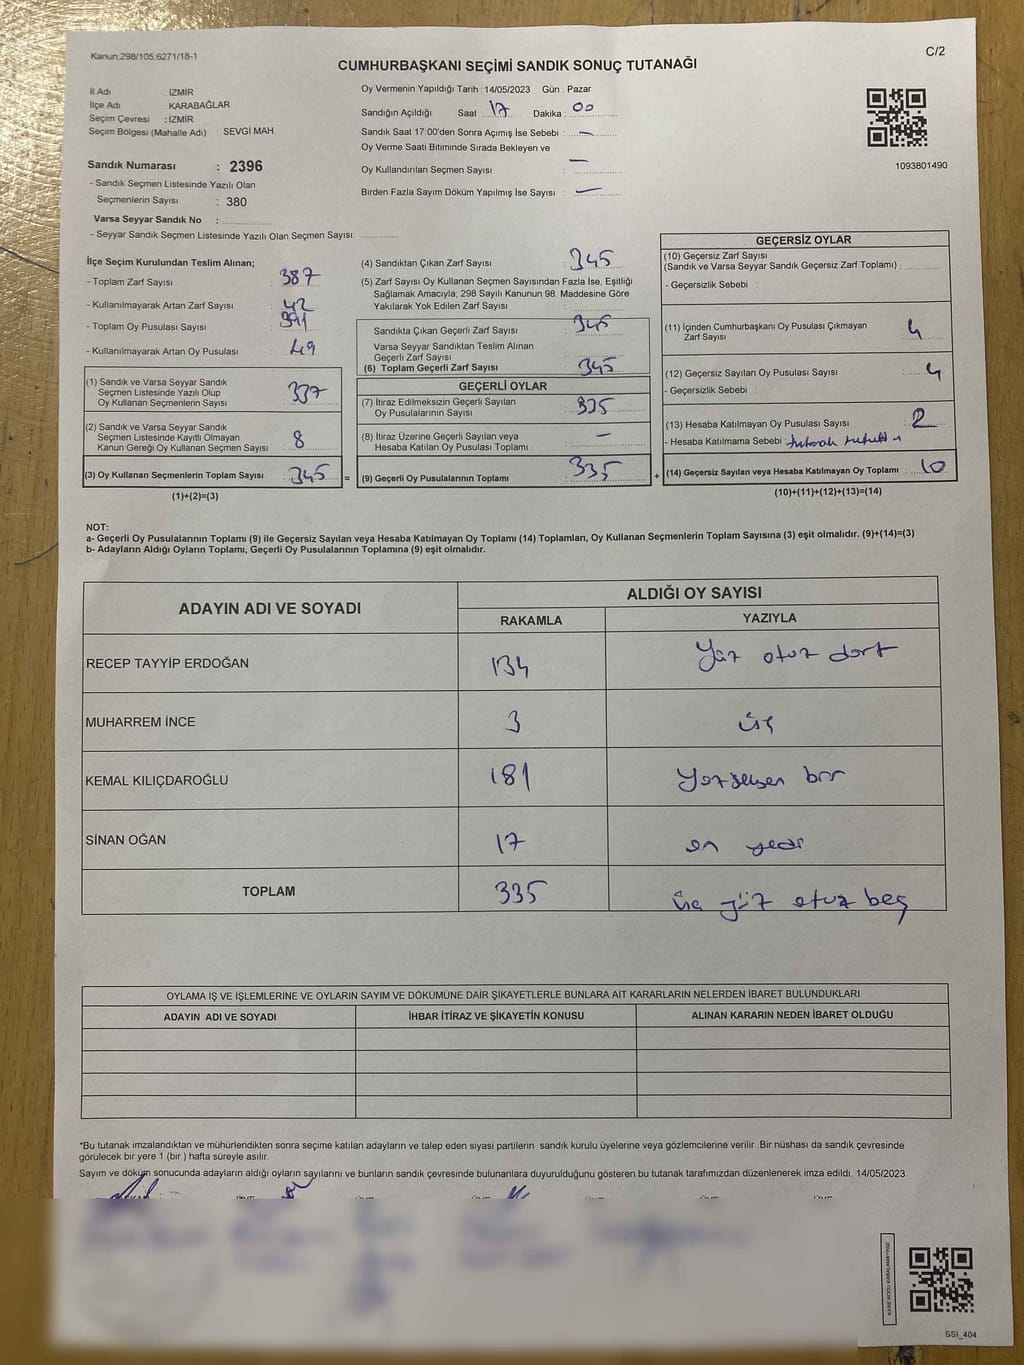 Kanun;298/105;6271/18-1
C/2
CUMHURBAŞKANI SEÇİMİ SANDIK SONUÇ TUTANAĞI
İl Adı : İZMİR
İlçe Adı : KARABAĞLAR
Seçim Çevresi : İZMİR
Seçim Bölgesi (Mahalle Adı) : SEVGİ MAH.
Sandık Numarası : 2396
- Sandık Seçmen Listesinde Yazılı Olan
Seçmenlerin Sayısı : 380
Varsa Seyyar Sandık No :
- Seyyar Sandık Seçmen Listesinde Yazılı Olan Seçmen Sayısı:
Oy Vermenin Yapıldığı Tarih : 14/05/2023 Gün : Pazar
Sandığın Açıldığı Saat : 17 Dakika : 00
Sandık Saat 17.00'den Sonra Açımış İse Sebebi : —
Oy Verme Saati Bitiminde Sırada Bekleyen ve
Oy Kullandırılan Seçmen Sayısı : —
Birden Fazla Sayım Döküm Yapılmış İse Sayısı : —
1093801490
İlçe Seçim Kurulundan Teslim Alınan;
- Toplam Zarf Sayısı : 387
- Kullanılmayarak Artan Zarf Sayısı : 42
- Toplam Oy Pusulası Sayısı : 391
- Kullanılmayarak Artan Oy Pusulası : 49
(1) Sandık ve Varsa Seyyar Sandık
Seçmen Listesinde Yazılı Olup
Oy Kullanan Seçmenlerin Sayısı : 337
(2) Sandık ve Varsa Seyyar Sandık
Seçmen Listesinde Kayıtlı Olmayan
Kanun Gereği Oy Kullanan Seçmen Sayısı : 8
(3) Oy Kullanan Seçmenlerin Toplam Sayısı : 345 =
(1)+(2)=(3)
(4) Sandıktan Çıkan Zarf Sayısı : 345
(5) Zarf Sayısı Oy Kullanan Seçmen Sayısından Fazla İse, Eşitliği
Sağlamak Amacıyla; 298 Sayılı Kanunun 98. Maddesine Göre
Yakılarak Yok Edilen Zarf Sayısı :
Sandıkta Çıkan Geçerli Zarf Sayısı : 345
Varsa Seyyar Sandıktan Teslim Alınan
Geçerli Zarf Sayısı :
(6) Toplam Geçerli Zarf Sayısı : 345
GEÇERLİ OYLAR
(7) İtiraz Edilmeksizin Geçerli Sayılan
Oy Pusulalarının Sayısı : 335
(8) İtiraz Üzerine Geçerli Sayılan veya
Hesaba Katılan Oy Pusulası Toplamı : —
(9) Geçerli Oy Pusulalarının Toplamı : 335 +
GEÇERSİZ OYLAR
(10) Geçersiz Zarf Sayısı
(Sandık ve Varsa Seyyar Sandık Geçersiz Zarf Toplamı) :
- Geçersizlik Sebebi :
(11) İçinden Cumhurbaşkanı Oy Pusulası Çıkmayan
Zarf Sayısı : 4
(12) Geçersiz Sayılan Oy Pusulası Sayısı : 4
- Geçersizlik Sebebi :
(13) Hesaba Katılmayan Oy Pusulası Sayısı : 2
- Hesaba Katılmama Sebebi :
(14) Geçersiz Sayılan veya Hesaba Katılmayan Oy Toplamı : 10
(10)+(11)+(12)+(13)=(14)
NOT:
a- Geçerli Oy Pusulalarının Toplamı (9) ile Geçersiz Sayılan veya Hesaba Katılmayan Oy Toplamı (14) Toplamları, Oy Kullanan Seçmenlerin Toplam Sayısına (3) eşit olmalıdır. (9)+(14)=(3)
b- Adayların Aldığı Oyların Toplamı, Geçerli Oy Pusulalarının Toplamına (9) eşit olmalıdır.
ADAYIN ADI VE SOYADI
ALDIĞI OY SAYISI
RAKAMLA YAZIYLA
RECEP TAYYİP ERDOĞAN 134 Yüz otuz dört
MUHARREM İNCE 3 üç
KEMAL KILIÇDAROĞLU 181 Yüzseksen bir
SİNAN OĞAN 17 on yedi
TOPLAM 335 üç yüz otuz beş
OYLAMA İŞ VE İŞLEMLERİNE VE OYLARIN SAYIM VE DÖKÜMÜNE DAİR ŞİKAYETLERLE BUNLARA AİT KARARLARIN NELERDEN İBARET BULUNDUKLARI
ADAYIN ADI VE SOYADI İHBAR İTİRAZ VE ŞİKAYETİN KONUSU ALINAN KARARIN NEDEN İBARET OLDUĞU
*Bu tutanak imzalandıktan ve mühürlendikten sonra seçime katılan adayların ve talep eden siyasi partilerin sandık kurulu üyelerine veya gözlemcilerine verilir .Bir nüshası da sandık çevresinde
görülecek bir yere 1 (bir ) hafta süreyle asılır.
Sayım ve döküm sonucunda adayların aldığı oyların sayılarını ve bunların sandık çevresinde bulunanlara duyurulduğunu gösteren bu tutanak tarafımızdan düzenlenerek imza edildi. 14/05/2023
KARE KODU KARALAMAYINIZ!
SSI_404